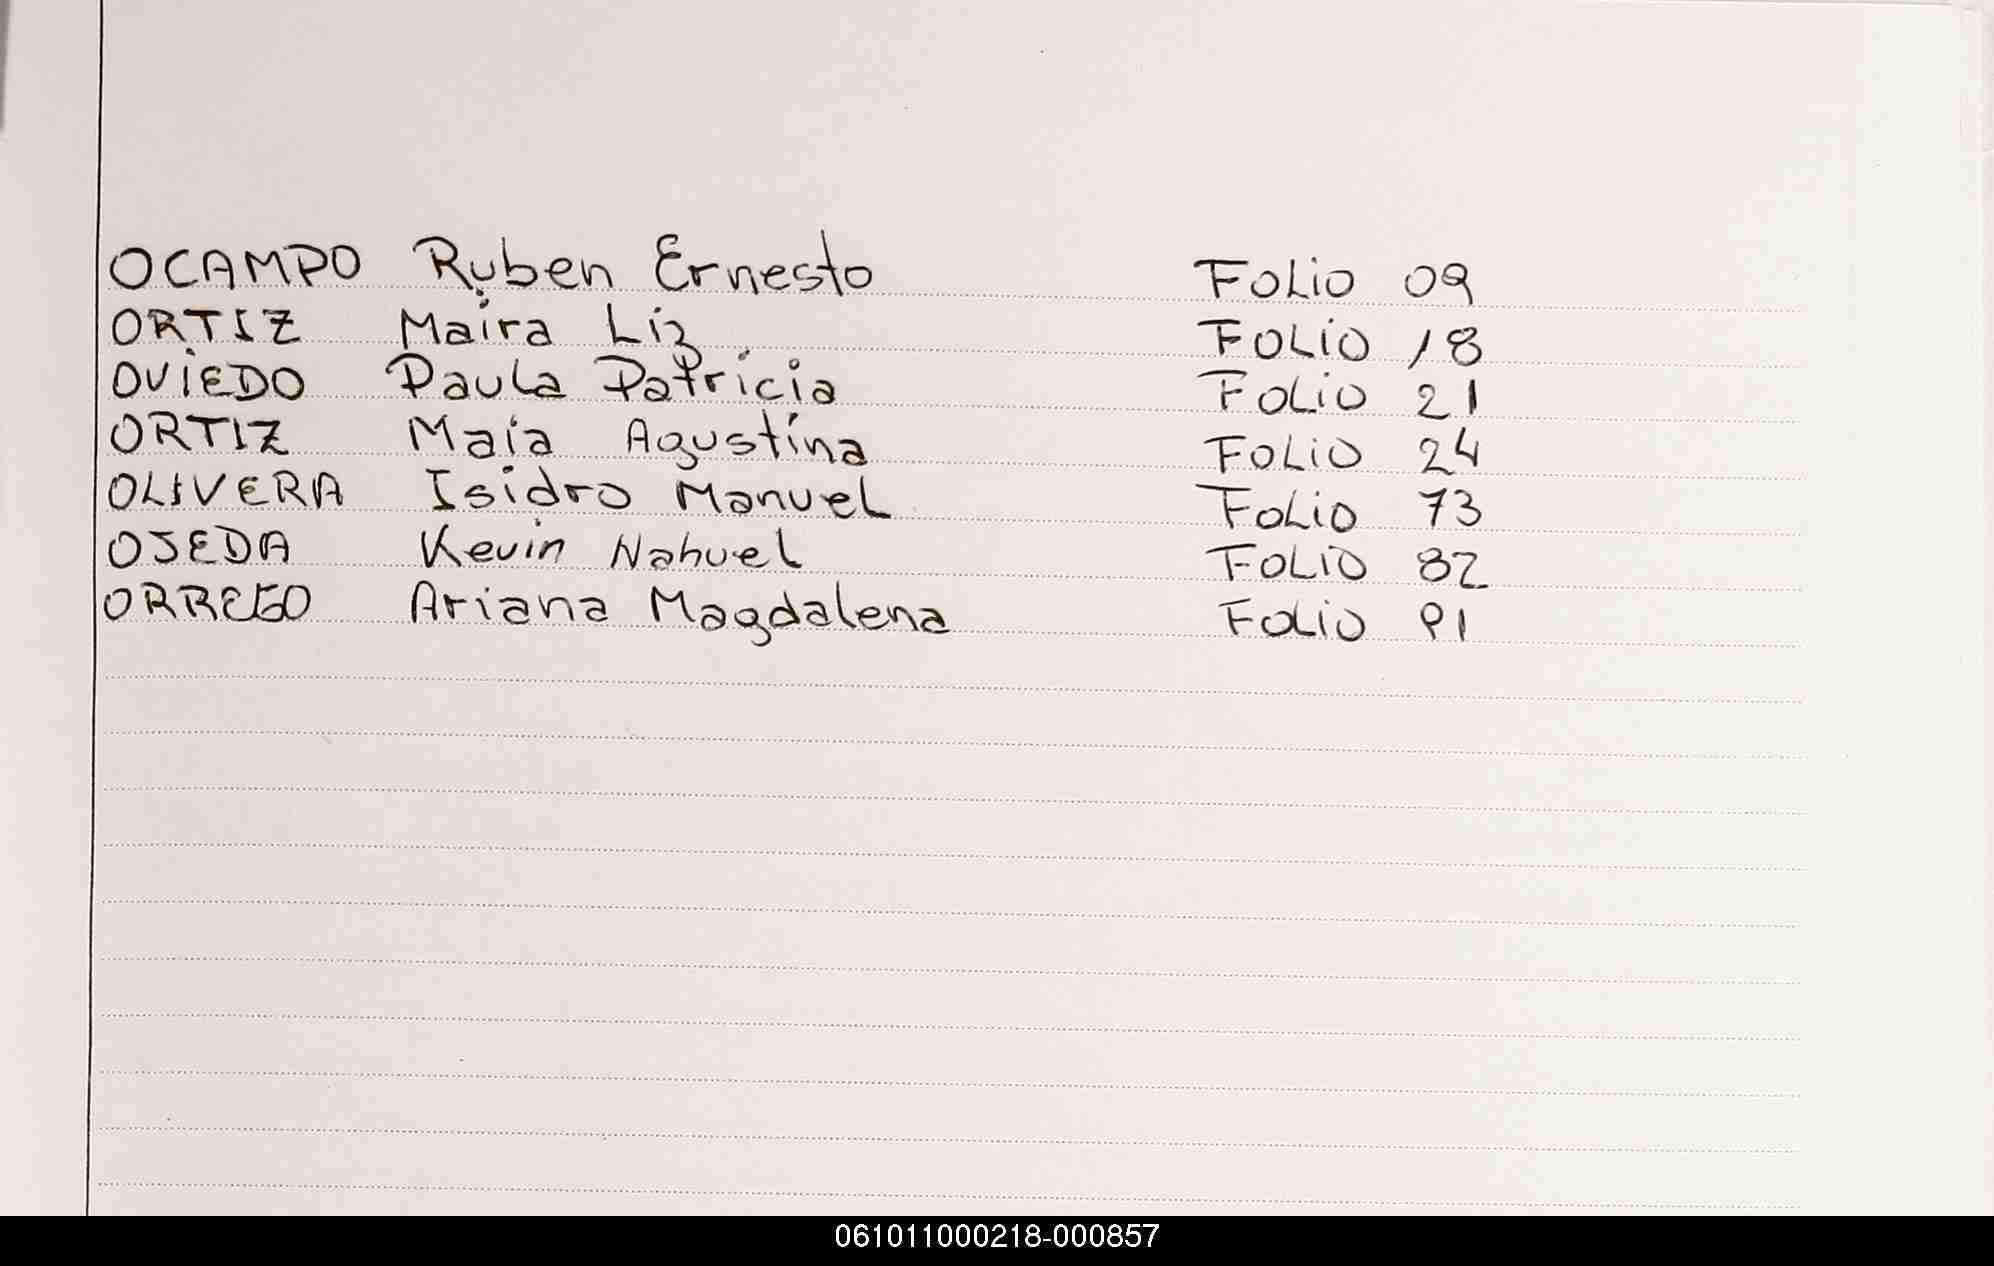 OCAMPO Ruben Ernesto Folio 09
ORTIZ Maira Liz Folio 18
OVIEDO Paula Patricia Folio 21
ORTIZ Maia Agustina Folio 24
OLIVERA Isidro Manuel Folio 73
OJEDA Kevin Nahuel Folio 82
ORREGO Ariana Magdalena Folio 91
061011000218-000857